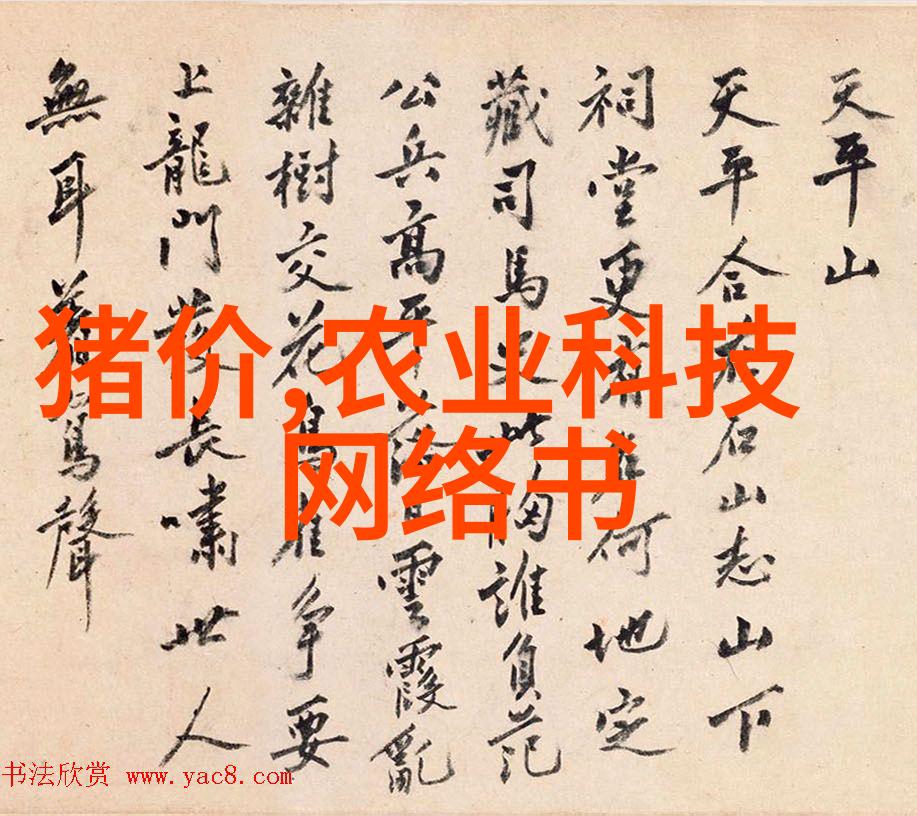 天平山
天平合石山志山下
祠堂更何地定
藏司馬史此誰負范
公兵高平落雲霞亂
雜樹交花雀爭要
上龍門發長嘯世人
無耳聲
猪价,农业科技
网络书
书法欣赏 www.yac8.com